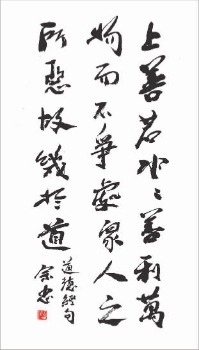 上善若水〻善利萬
物而不爭處眾人之
所惡故幾於道
道德經句
宗忠